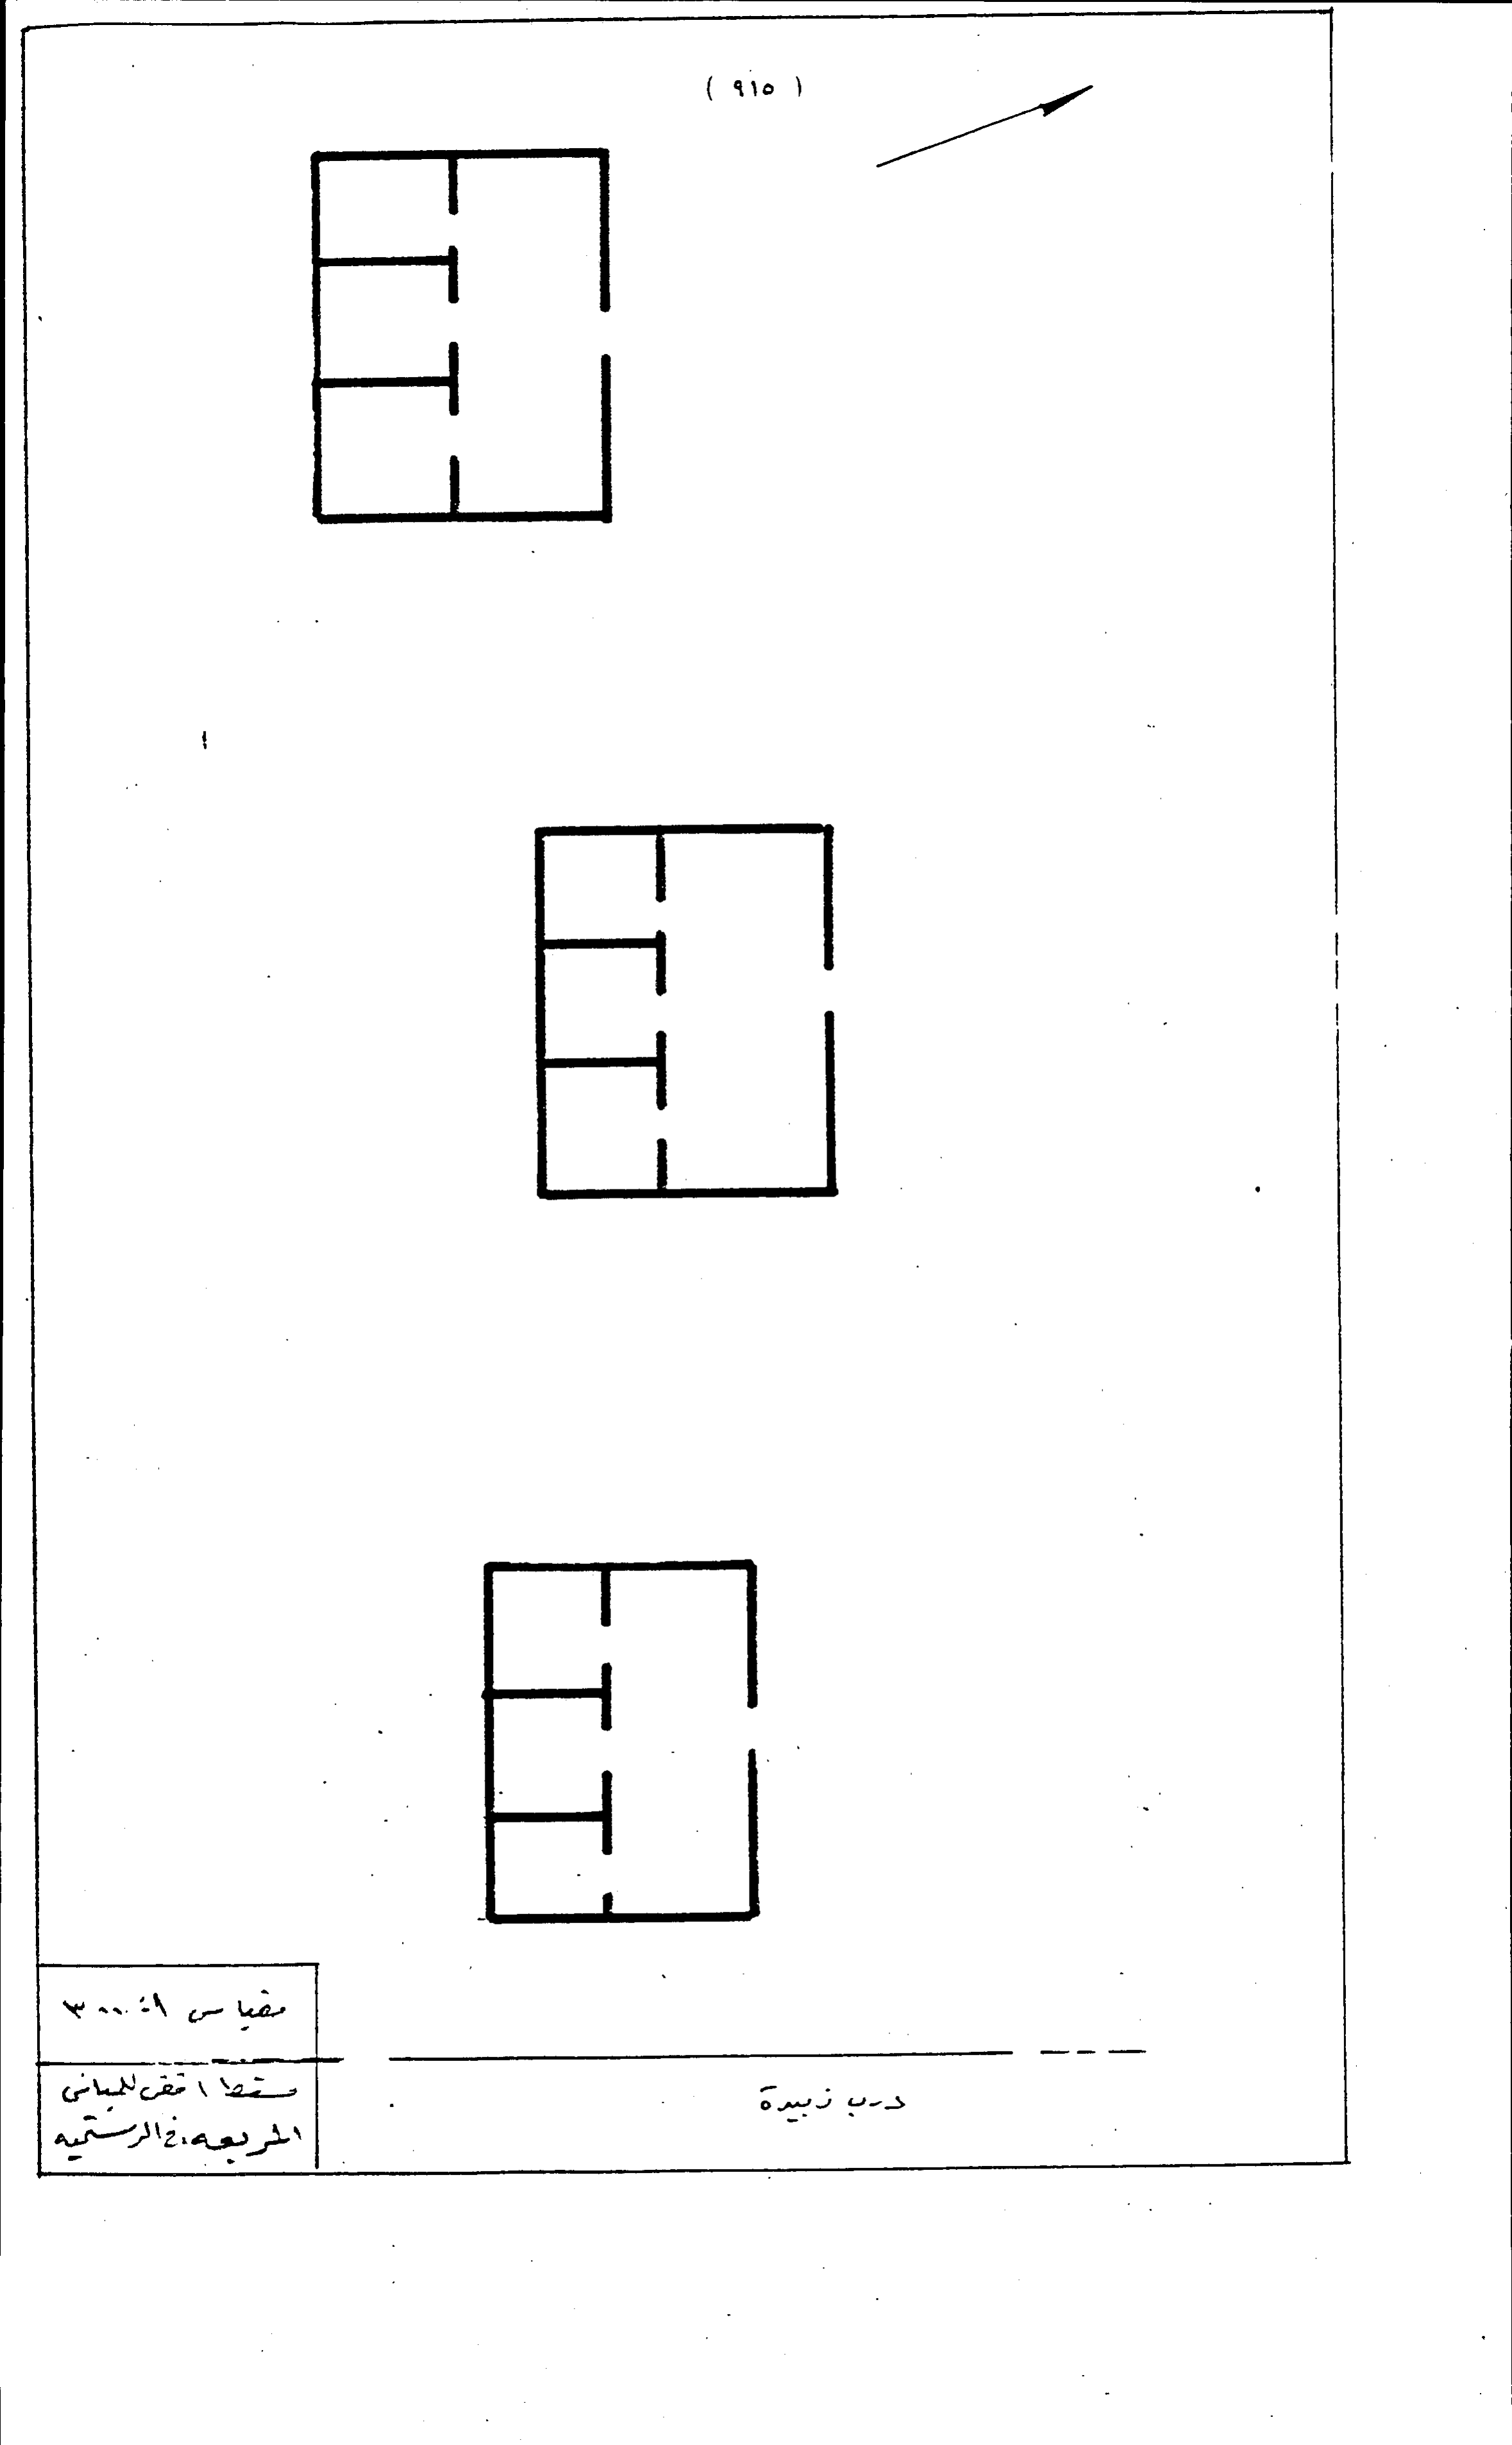 ( ٩١٥ )
مقياس ١ : ٣٠٠٠
مسقط افقى للمبانى
المربعه فى الرستميه
درب زبيدة